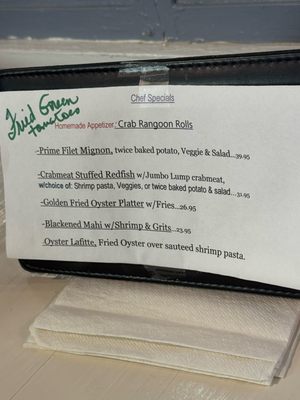 Chef Specials
Fried Green
Tomatoes
Homemade Appetizer: Crab Rangoon Rolls
-Prime Filet Mignon, twice baked potato, Veggie & Salad...39.95
-Crabmeat Stuffed Redfish w/Jumbo Lump crabmeat,
w/choice of: Shrimp pasta, Veggies, or twice baked potato & salad...31.95
-Golden Fried Oyster Platter w/Fries...26.95
-Blackened Mahi w/Shrimp & Grits...23.95
Oyster Lafitte, Fried Oyster over sauteed shrimp pasta.